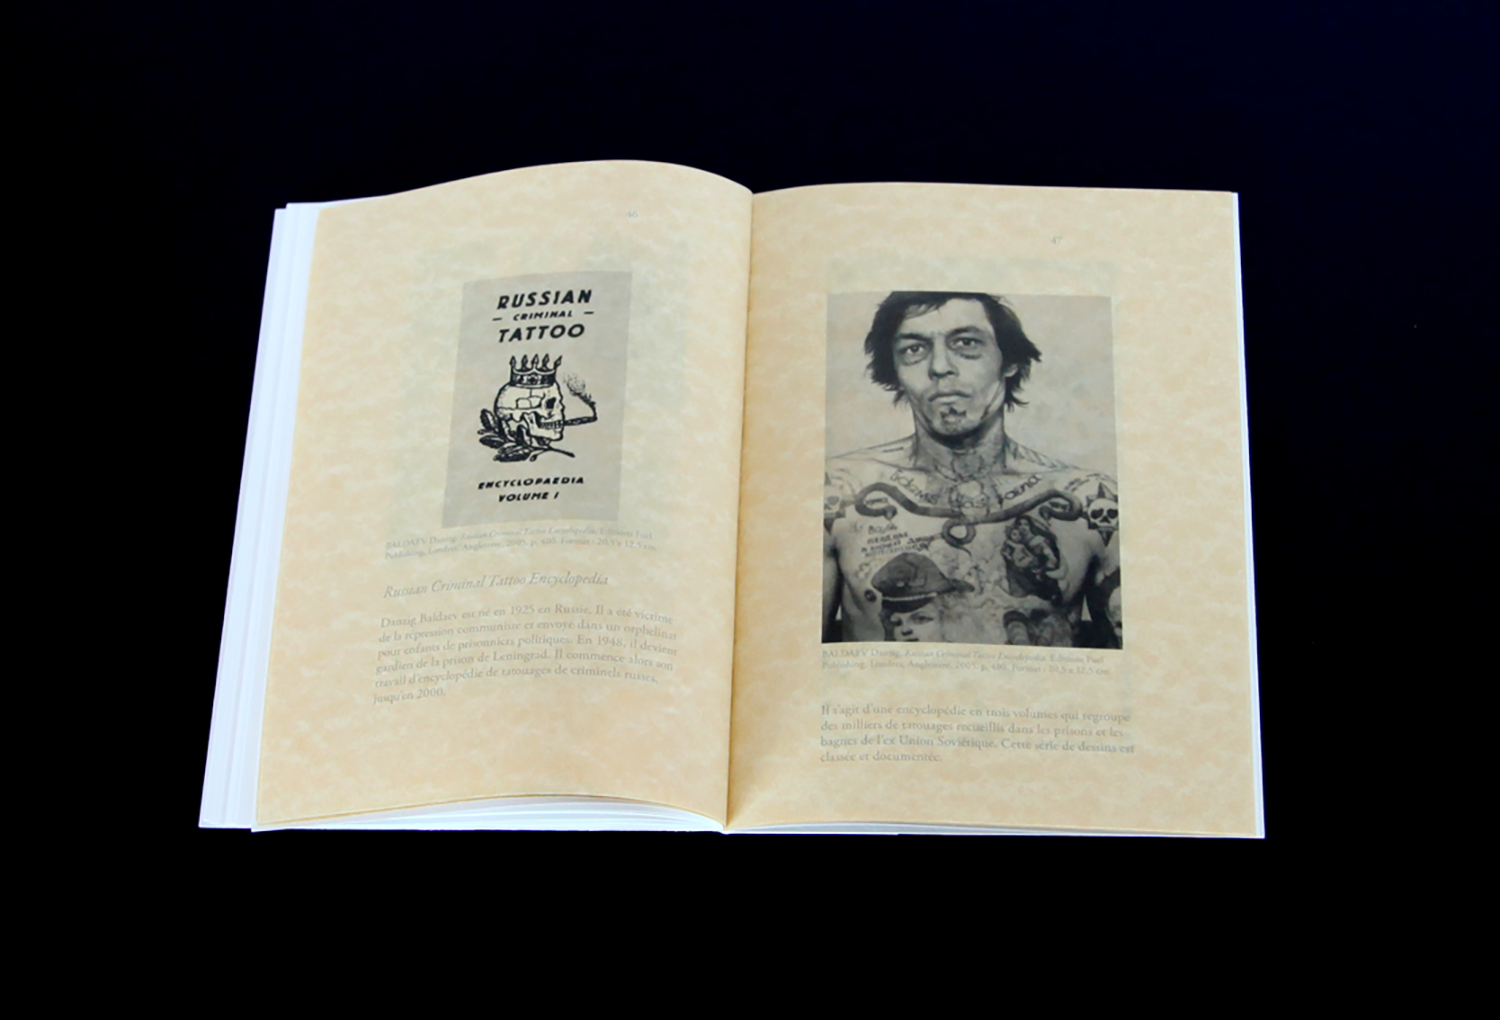 46
RUSSIAN
— CRIMINAL —
TATTOO
ENCYCLOPAEDIA
VOLUME I
BALDAEV Danzig, Russian Criminal Tattoo Encyclopedia. Editions Fuel
Publishing, Londres, Angleterre, 2005. p. 400. Format : 20,5 x 12.5 cm.
Russian Criminal Tattoo Encyclopedia
Danzig Baldaev est né en 1925 en Russie. Il a été victime
de la répression communiste et envoyé dans un orphelinat
pour enfants de prisonniers politiques. En 1948, il devient
gardien de la prison de Leningrad. Il commence alors son
travail d'encyclopédie de tatouages de criminels russes,
jusqu'en 2000.
47
BALDAEV Danzig, Russian Criminal Tattoo Encyclopedia. Editions Fuel
Publishing, Londres, Angleterre, 2005. p. 400. Format : 20,5 x 12.5 cm.
Il s'agit d'une encyclopédie en trois volumes qui regroupe
des milliers de tatouages recueillis dans les prisons et les
bagnes de l'ex Union Soviétique. Cette série de dessins est
classée et documentée.